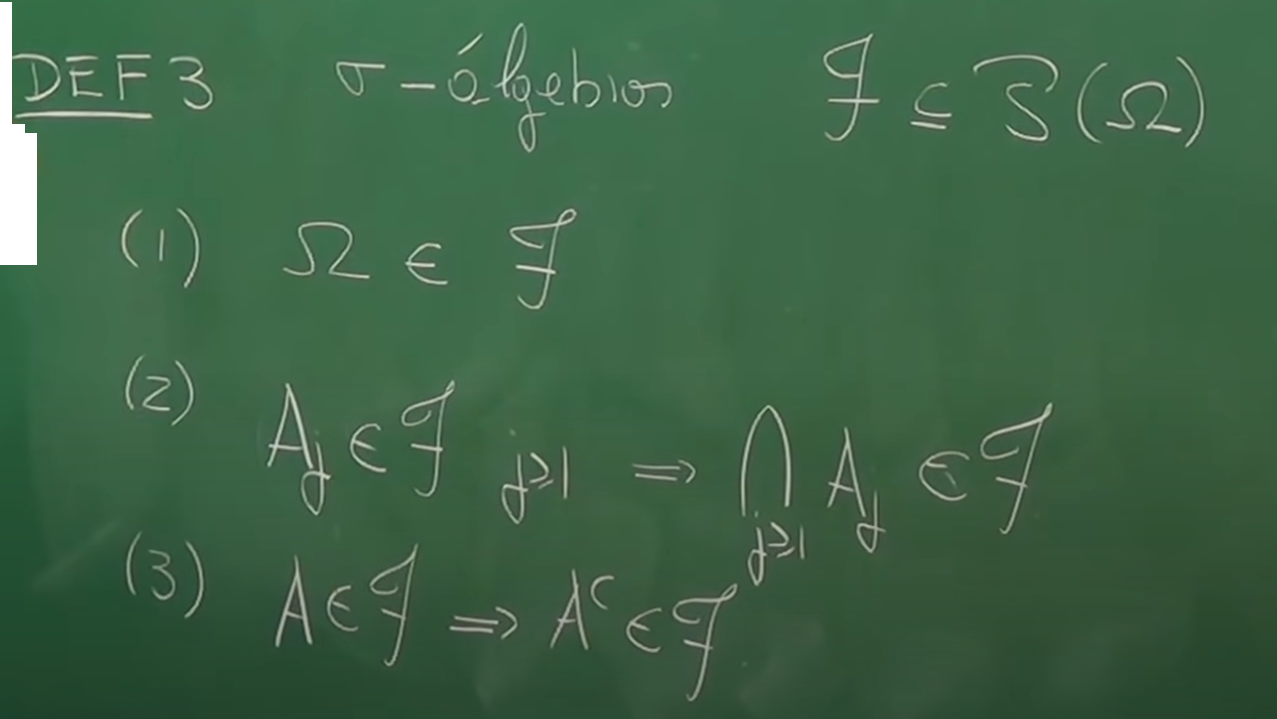 DEF 3 σ-álgebras ℱ ⊆ 𝒫(Ω)
(1) Ω ∈ ℱ
(2) A_j ∈ ℱ j≥1 ⇒ ⋂_{j≥1} A_j ∈ ℱ
(3) A ∈ ℱ ⇒ A^c ∈ ℱ